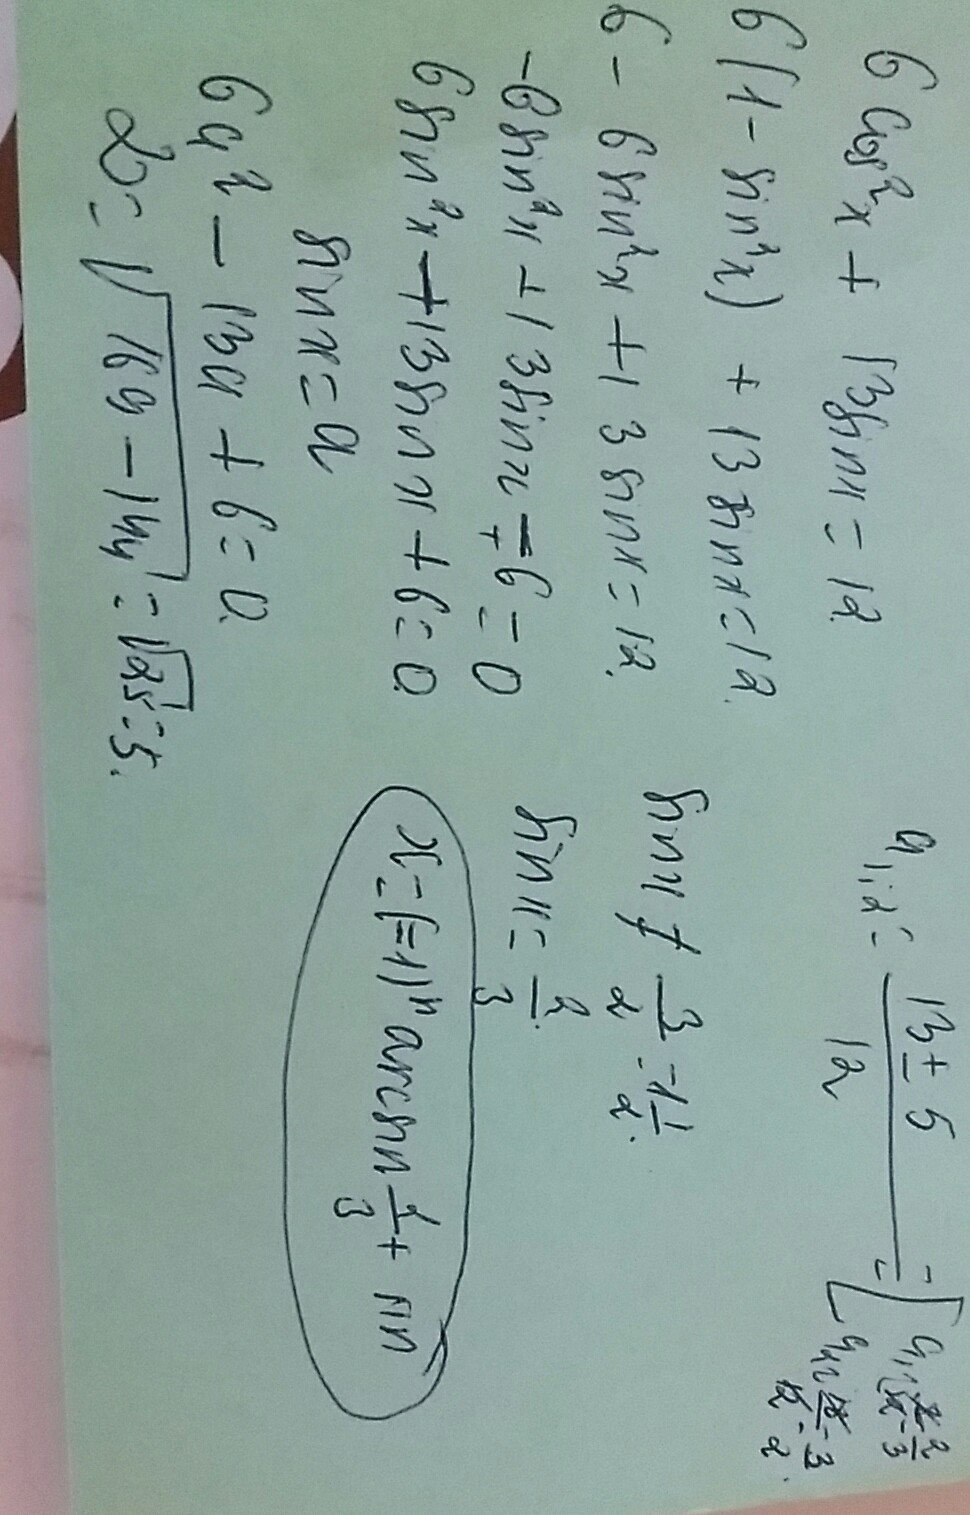 6 cos²x + 13 sin x = 12
6(1 - sin²x) + 13 sin x = 12
6 - 6 sin²x + 13 sin x = 12
-6 sin²x + 13 sin x - 6 = 0
6 sin²x - 13 sin x + 6 = 0
sin x = a
6a² - 13a + 6 = 0
D = √169 - 144 = √25 = 5.
a₁,₂ = 13 ± 5 / 12 = [ a₁ = 2/3
a₂ = 18/12 = 3/2.
sin x ≠ 3/2 = 1 1/2.
sin x = 2/3.
x = (-1)ⁿ arcsin 2/3 + πn